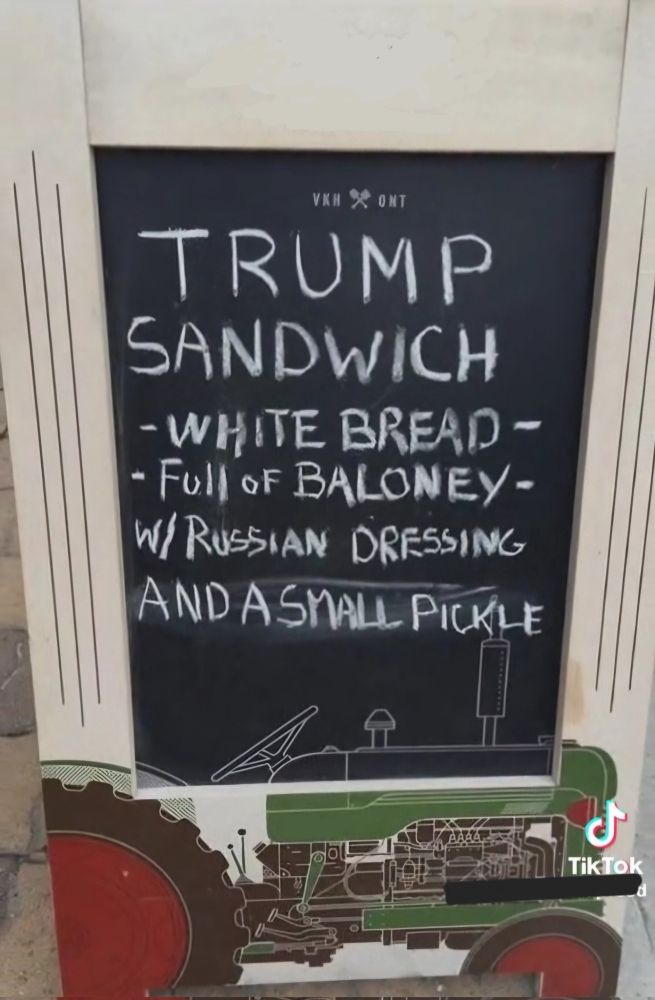 VKH ONT
TRUMP
SANDWICH
-WHITE BREAD-
-Full of BALONEY-
W/ RUSSIAN DRESSING
AND A SMALL PICKLE
TikTok